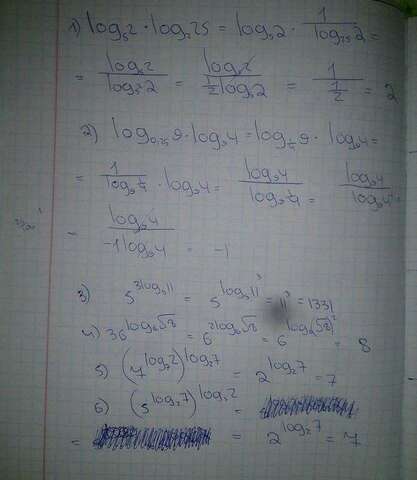 1) log₅2 · log₂25 = log₅2 · 1/log₂₅2 =
= log₅2/log₅²2 = log₅2/(1/2 log₅2) = 1/(1/2) = 2
2) log₀,₂₅9 · log₉4 = log₁/₄9 · log₉4 =
= 1/log₉1/4 · log₉4 = log₉4/log₉1/4 = log₉4/log₉4⁻¹
= log₉4/-1log₉4 = -1
3) 5^(3log₅11) = 5^(log₅11³) = 11³ = 1331
4) 36^(log₆√8) = 6^(2log₆√8) = 6^(log₆(√8)²) = 8
5) (7^(log₇2))^(log₂7) = 2^(log₂7) = 7
6) (5^(log₂7))^(log₅2) =
= = 2^(log₂7) = 7